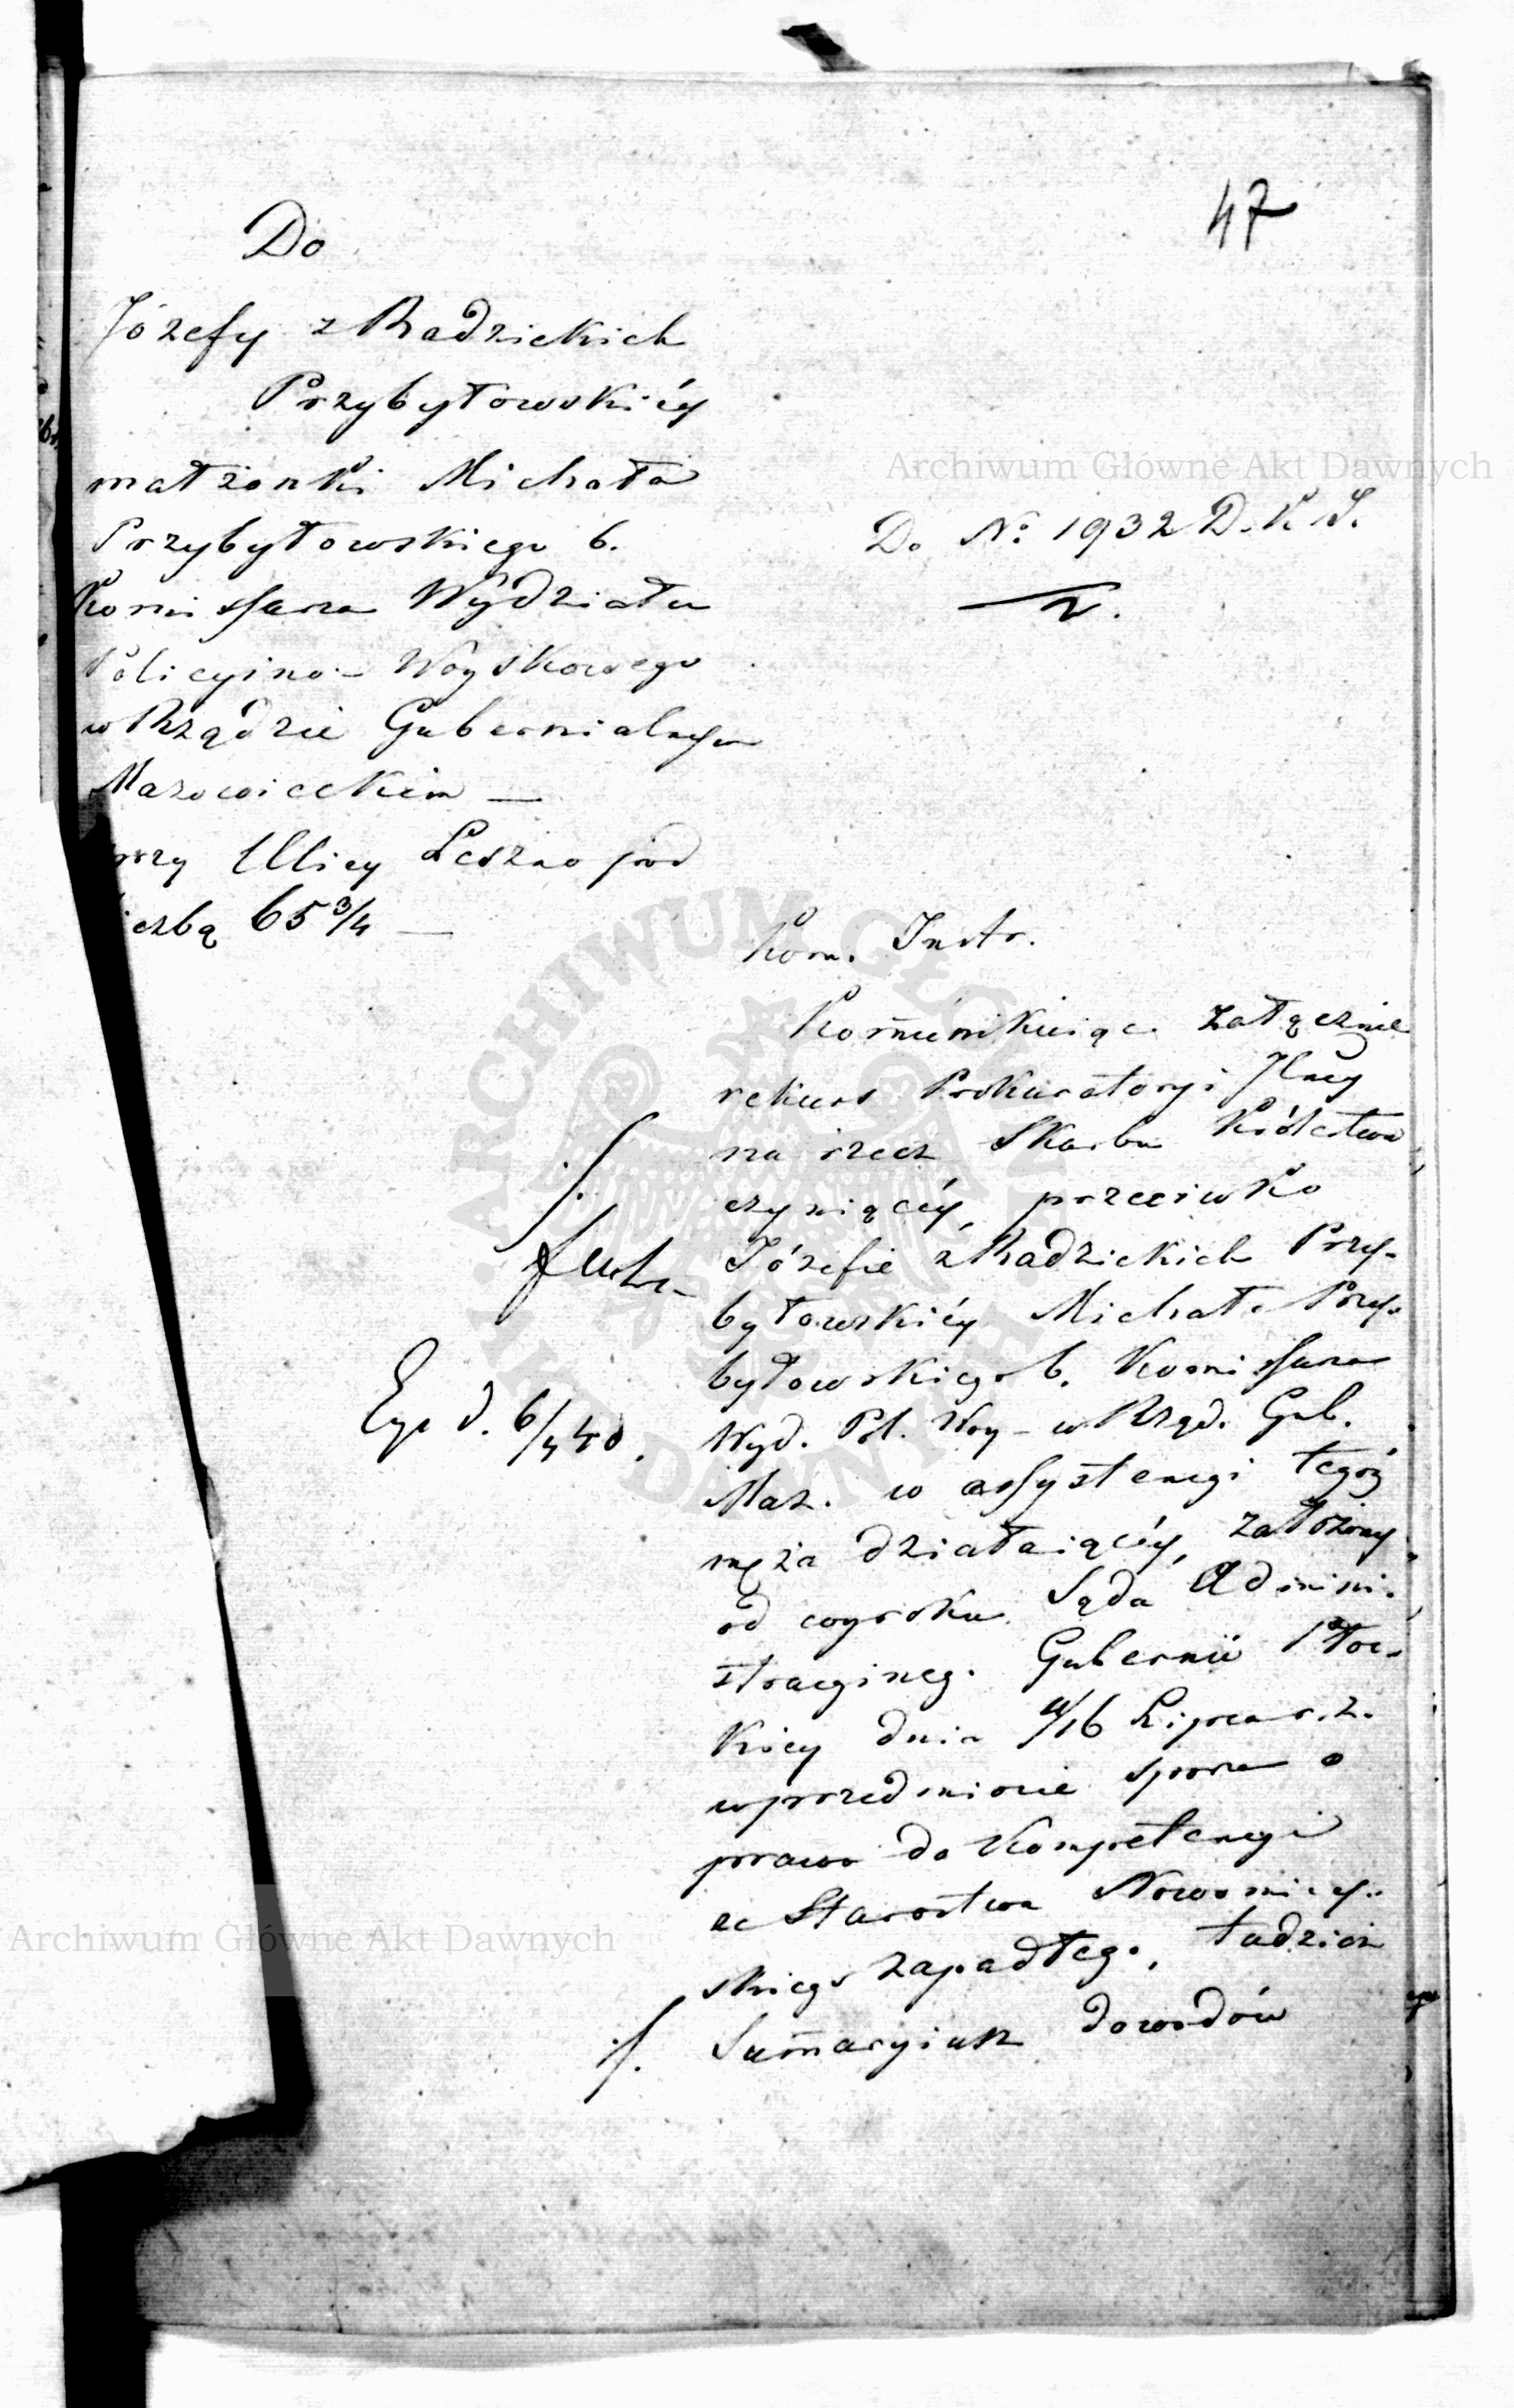 47
Do
Józefy z Radzickich
Przybyłowskiéy
małżonki Michała
Przybyłowskiego b.
Kommissarza Wydziału
Policyino-Woyskowego
w Rządzie Gubernialnym
Mazowieckim —
przy Ulicy Leszno pod
liczbą 65¾ —
Do No: 1932 D.K.S.
Kom. Instr.
Kom̄unikuiąc załącznie
rekurs Prokuratoryi
na rzecz Skarbu Królestwa
czyniącéy, przeciwko
Józefie z Radzickich Przy-
byłowskiéy Michała Przy-
byłowskiego b. Kommissarza
Wyd. Pol. Woy- w Rząd. Gub.
Maz. w assystencyi tegoż
męża działaiącéy, założony
od wyroku Sądu Admini-
stracyineg. Gubernii Płoc-
kiey dnia 4/16 Lipca r. z.
w przedmiocie sporu o
prawo do Kompetencyi
ze Starostwa Nowomiey-
skiego zapadłego, tudzież
Sum̄aryiusz dowodów
Exp d. 6/4 40.
Archiwum Główne Akt Dawnych
Archiwum Główne Akt Dawnych
ARCHIWUM GŁÓWNE AKT DAWNYCH